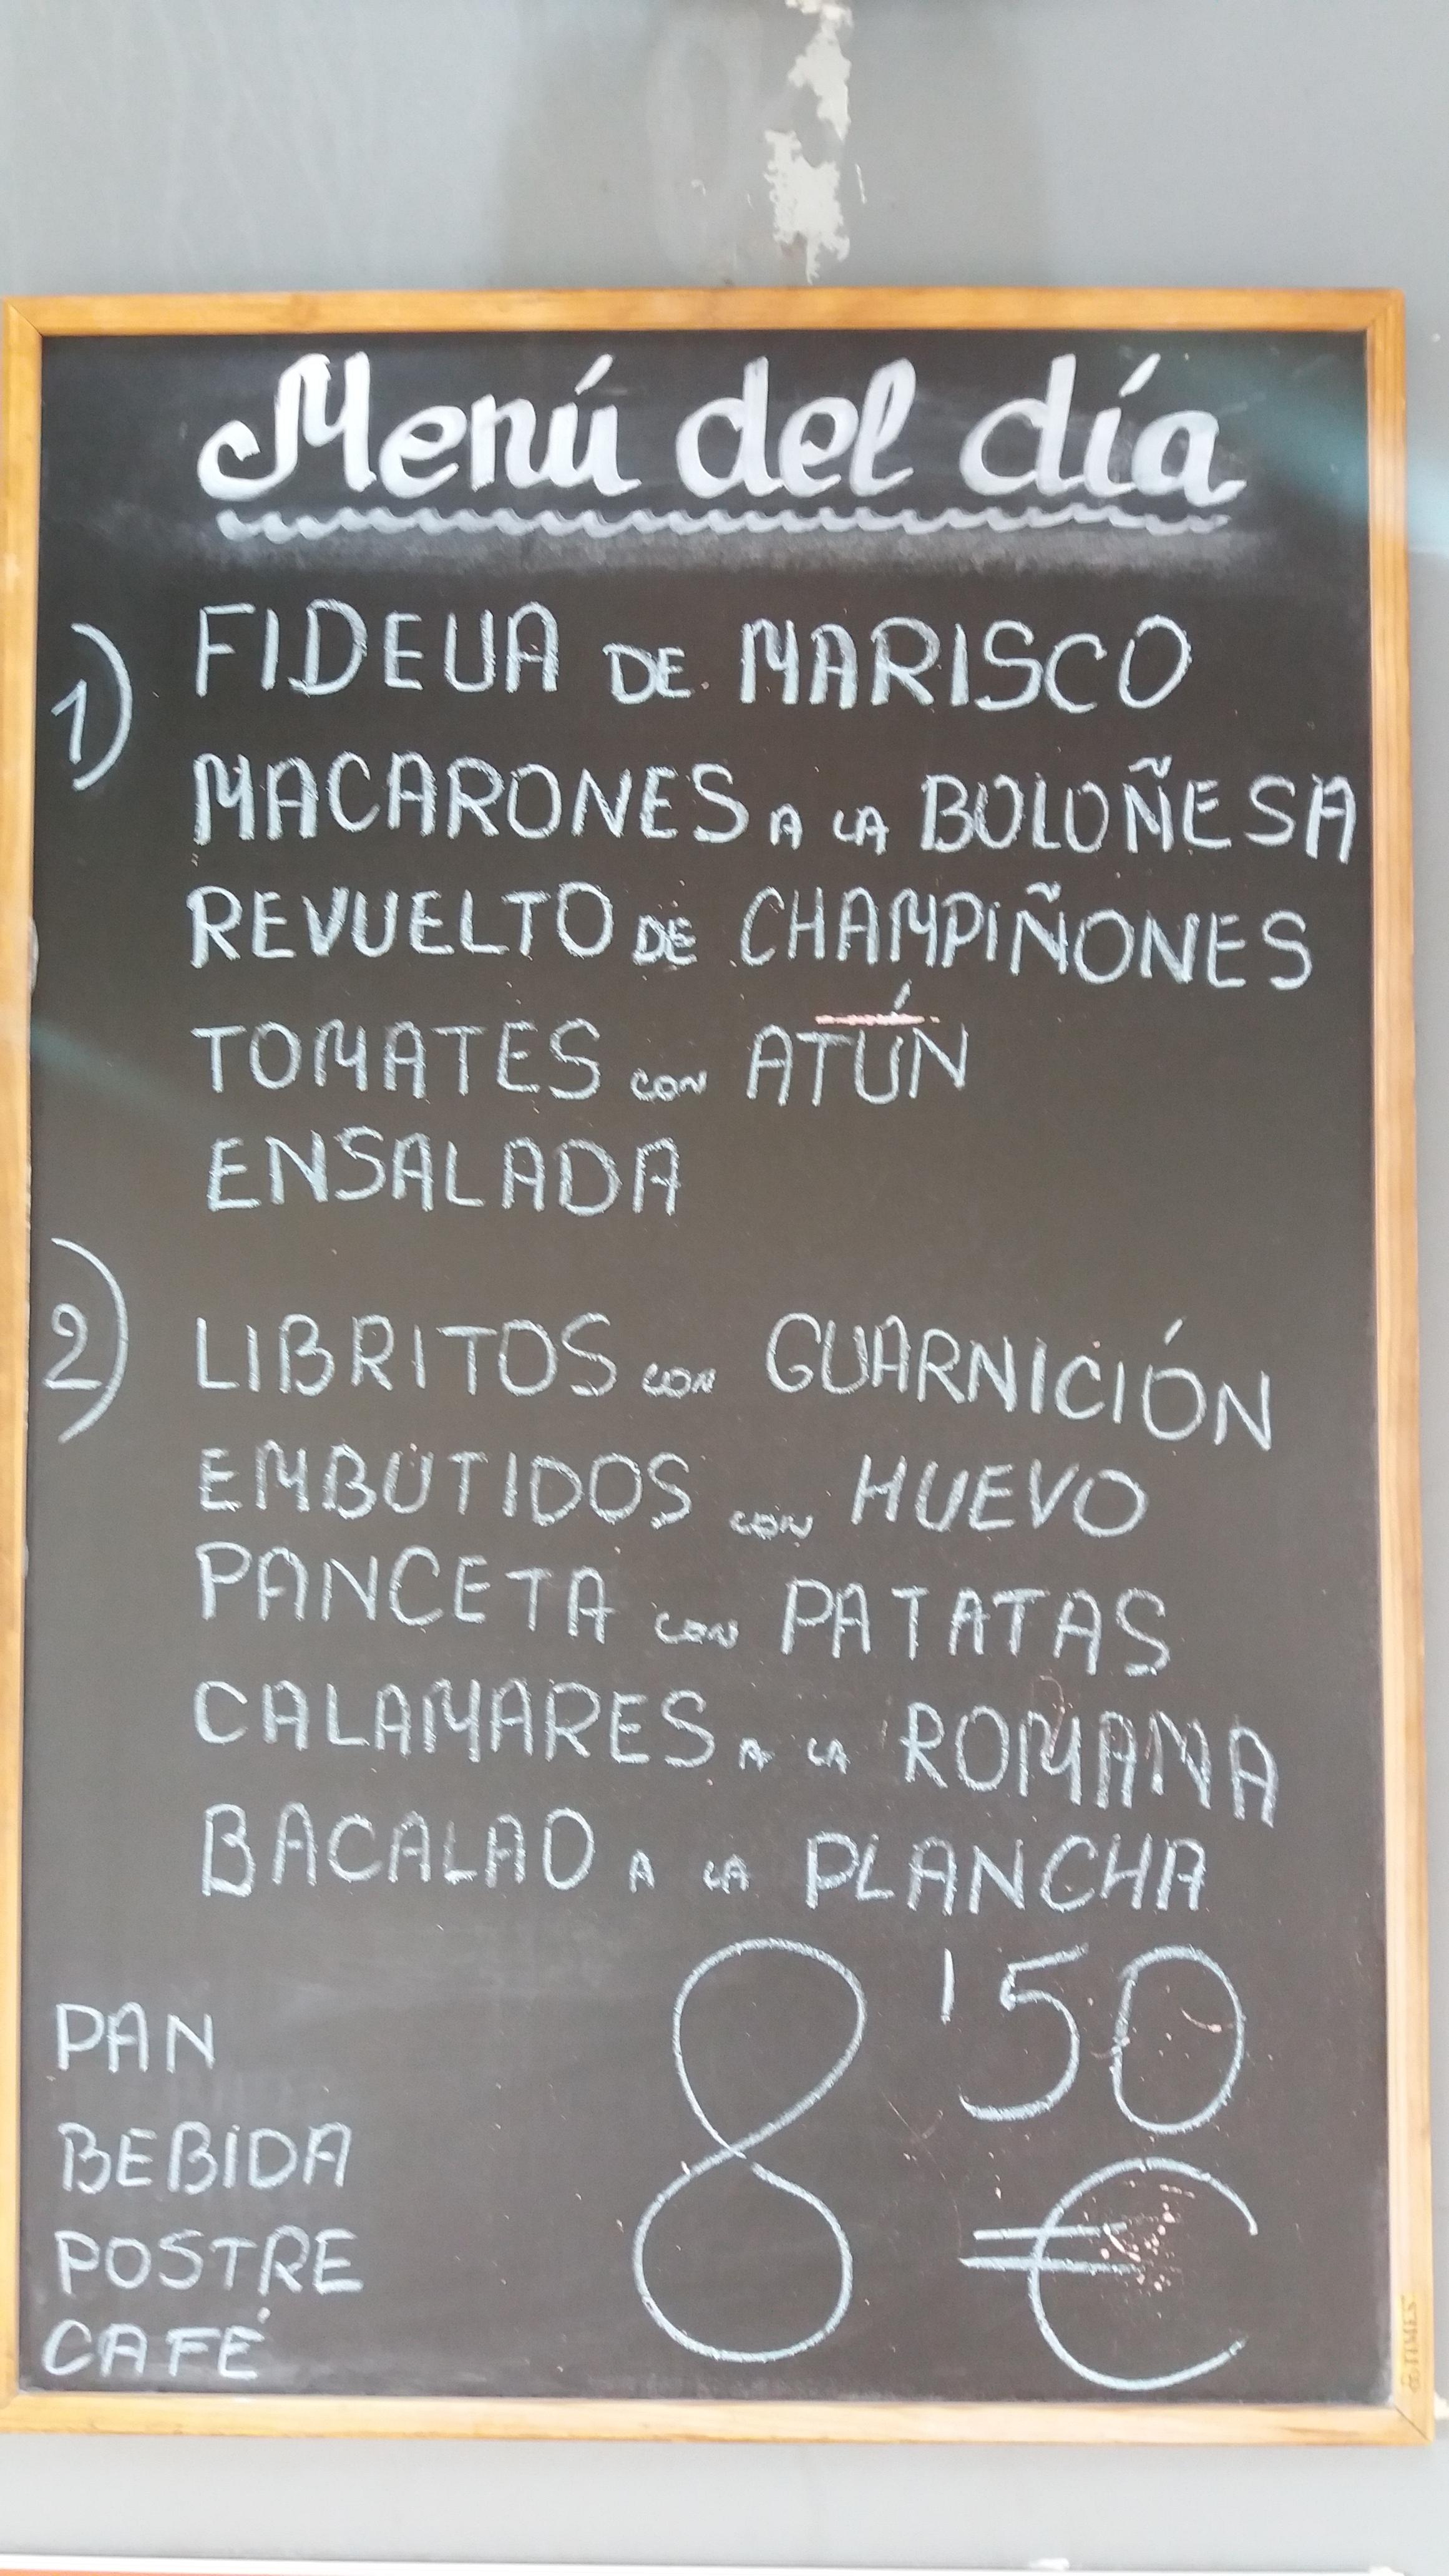 Menú del día
1) FIDEUA DE MARISCO
MACARONES A LA BOLOÑESA
REVUELTO DE CHAMPIÑONES
TOMATES CON ATÚN
ENSALADA
2) LIBRITOS CON GUARNICIÓN
EMBUTIDOS CON HUEVO
PANCETA CON PATATAS
CALAMARES A LA ROMANA
BACALAO A LA PLANCHA
8'50 €
PAN
BEBIDA
POSTRE
CAFÉ